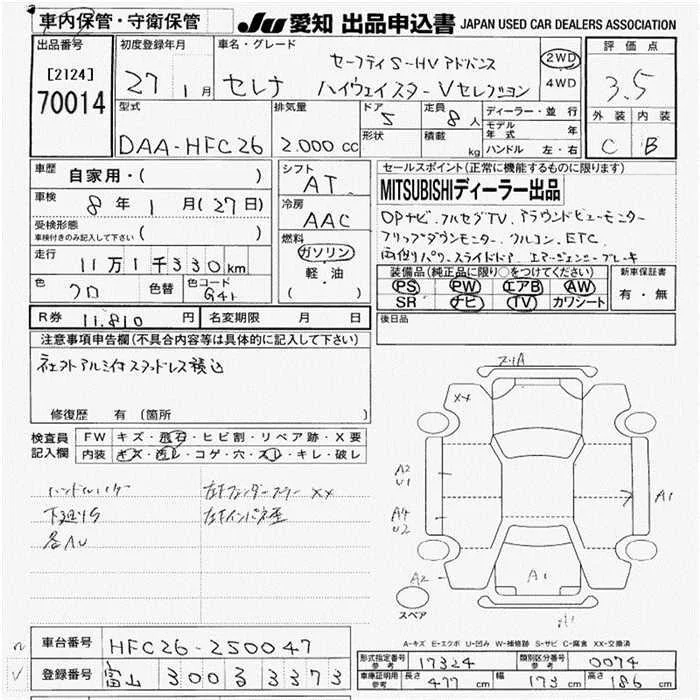 車内保管・守衛保管
JU 愛知 出品申込書 JAPAN USED CAR DEALERS ASSOCIATION
出品番号
[2124]
70014
初度登録年月
27年 1月
車名・グレード
セーフティS-HVアドバンス
セレナ ハイウェイスターVセレクション
2WD
4WD
評価点
3.5
外装 内装
C B
型式
DAA-HFC26
排気量
2.000cc
ドア
5
形状
定員
8人
積載
kg
ディーラー・並行
モデル年式 年
ハンドル 左・右
車歴
自家用・( )
車検
8年 1月(27日)
受検形態
車検付きのみ記入して下さい ( )
走行
11万1千330km
色
クロ
色替
色コード
G41
シフト
AT
冷房
AAC
燃料
ガソリン
・
軽・油
( )
セールスポイント(正常に機能するものに限ります)
MITSUBISHIディーラー出品
OPナビ.フルセグTV.アラウンドビューモニター
フリップダウンモニター.クルコン.ETC.
両側パワースライドドア.エマージェンシーブレーキ
装備品(純正品に限り○をつけてください)
PS PW エアB AW
SR ナビ TV カワシート
新車保証書
有・無
R券 11.810円
名変期限 月 日
後日品
注意事項申告欄(不具合内容等は具体的に記入して下さい)
社外アルミ付スタッドレス積込
修復歴 有(箇所 )
検査員
記入欄
FW キズ・飛石・ヒビ割・リペア跡・X要
内装 キズ・汚レ・コゲ・穴・スレ・キレ・破レ
ハンドル
下廻りS
各AU
XX
XX
A2
U1
A4
U2
A2
A1
A1
スペア
A-キズ E-エクボ U-凹み W-補修跡 S-サビ C-腐食 XX-交換済
車台番号 HFC26-250047
登録番号 富山 300 る 3373
形式指定番号 参考 17324
類別区分番号 参考 0074
車庫証明用 参考 長さ 477cm 幅 173cm 高さ 186cm